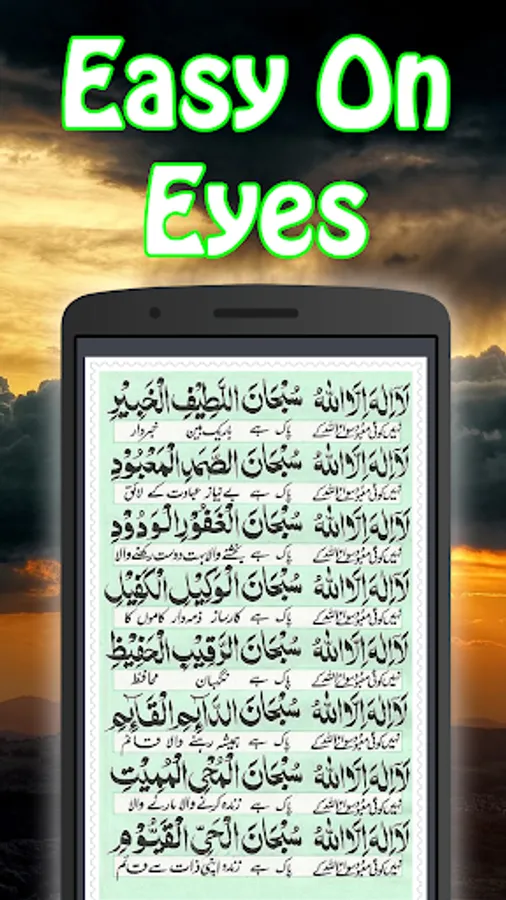 Easy On
Eyes
لَآ اِلٰهَ اِلَّا اللّٰهُ سُبْحَانَ اللَّطِيْفِ الْخَبِيْرِ
نہیں کوئی معبود سوائے اللہ کے پاک ہے باریک بین خبردار
لَآ اِلٰهَ اِلَّا اللّٰهُ سُبْحَانَ الصَّمَدِ الْمَعْبُوْدِ
نہیں کوئی معبود سوائے اللہ کے پاک ہے بے نیاز عبادت کے لائق
لَآ اِلٰهَ اِلَّا اللّٰهُ سُبْحَانَ الْغَفُوْرِ الْوَدُوْدِ
نہیں کوئی معبود سوائے اللہ کے پاک ہے بخشنے والا بہت دوست رکھنے والا
لَآ اِلٰهَ اِلَّا اللّٰهُ سُبْحَانَ الْوَكِيْلِ الْكَفِيْلِ
نہیں کوئی معبود سوائے اللہ کے پاک ہے کارساز ذمہ دار کاموں کا
لَآ اِلٰهَ اِلَّا اللّٰهُ سُبْحَانَ الرَّقِيْبِ الْحَفِيْظِ
نہیں کوئی معبود سوائے اللہ کے پاک ہے نگہبان محافظ
لَآ اِلٰهَ اِلَّا اللّٰهُ سُبْحَانَ الدَّآئِمِ الْقَآئِمِ
نہیں کوئی معبود سوائے اللہ کے پاک ہے ہمیشہ رہنے والا قائم
لَآ اِلٰهَ اِلَّا اللّٰهُ سُبْحَانَ الْمُحْيِ الْمُمِيْتِ
نہیں کوئی معبود سوائے اللہ کے پاک ہے زندہ کرنے والا مارنے والا
لَآ اِلٰهَ اِلَّا اللّٰهُ سُبْحَانَ الْحَيِّ الْقَيُّوْمِ
نہیں کوئی معبود سوائے اللہ کے پاک ہے زندہ اپنی ذات سے قائم